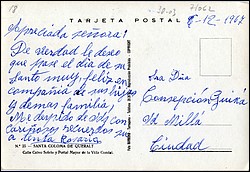 18
28-03
71062
TARJETA POSTAL
8-12-1967
Apreciada señora:
De verdad le deseo
que pase el día de su
santo muy feliz en
compañía de sus hijas
y demas familia.
Me despido de Vd con
cariñosos recuerdos su
Rosario
Sra Dña
Concepción
Vd Millá
Ciudad
N.º 25 - SANTA COLOMA DE QUERALT
Calle Calvo Sotelo y Portal Mayor de la Villa Condal.